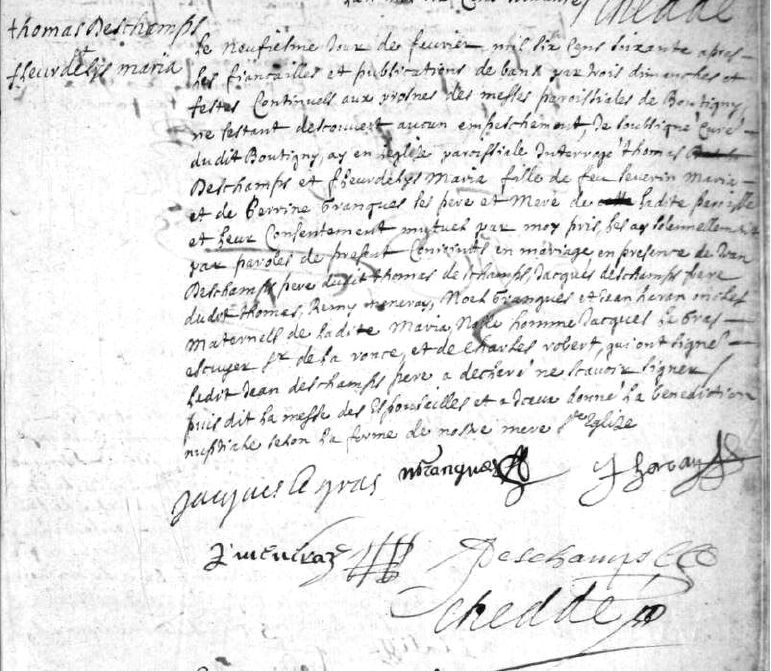 Chedde
thomas Deschamps
et
fleurdelys maria
le neufiesme Jour de fevrier mil six Cens soixante apres
les fiancailles et publications de bans par trois dimenches et
festes Continuels aux prosnes des messes paroissiales de Boutigny,
ne sestant descouvert aucun empeschement, Je soubsigné Curé
dudit Boutigny, ay en leglise paroissiale Interrogé thomas
Deschamps et fleurdelys Maria fille de feu severin Maria
et de Perrine Grangues ses pere et Mere de ladite
et leur Consentement mutuel par moy pris, les ay solemnellement
par paroles de present Conjoints en mariage, en presence de Jean
Deschamps pere dudit thomas deschamps, Jacques deschamps frere
dudit thomas, Remy, Noel Grangues et Jean heran oncles
maternels de ladite Maria, Noble homme Jacques Le Gras
escuyer sr de la ronce, et de Charles robert, qui ont signé
ledit Jean deschamps pere a declaré ne scavoir signer
puis dit la messe des Espousailles et a Iceux donné la benediction
nuptiale selon la forme de nostre mere ste Eglize
Jacques le gras N Grangues J heran
Deschamps
Chedde